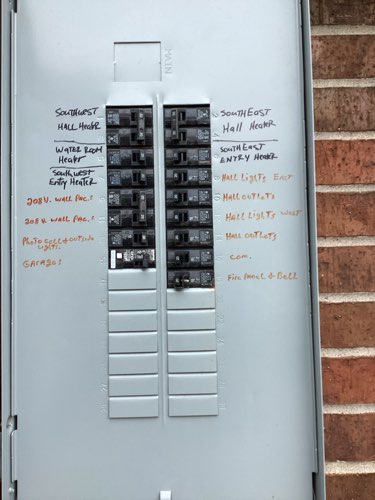 MAIN
SOUTHWEST
HALL HEATER
WATER ROOM
HEATER
SOUTHWEST
ENTRY HEATER
208V. WALL PAC.:
208V. WALL PAC.:
PHOTO CELL & OUTSIDE
LIGHTS.
GARAGE:
SOUTHEAST
HALL HEATER
SOUTHEAST
ENTRY HEATER
HALL LIGHTS EAST
HALL OUTLETS
HALL LIGHTS WEST
HALL OUTLETS
COM.
FIRE PANEL & BELL